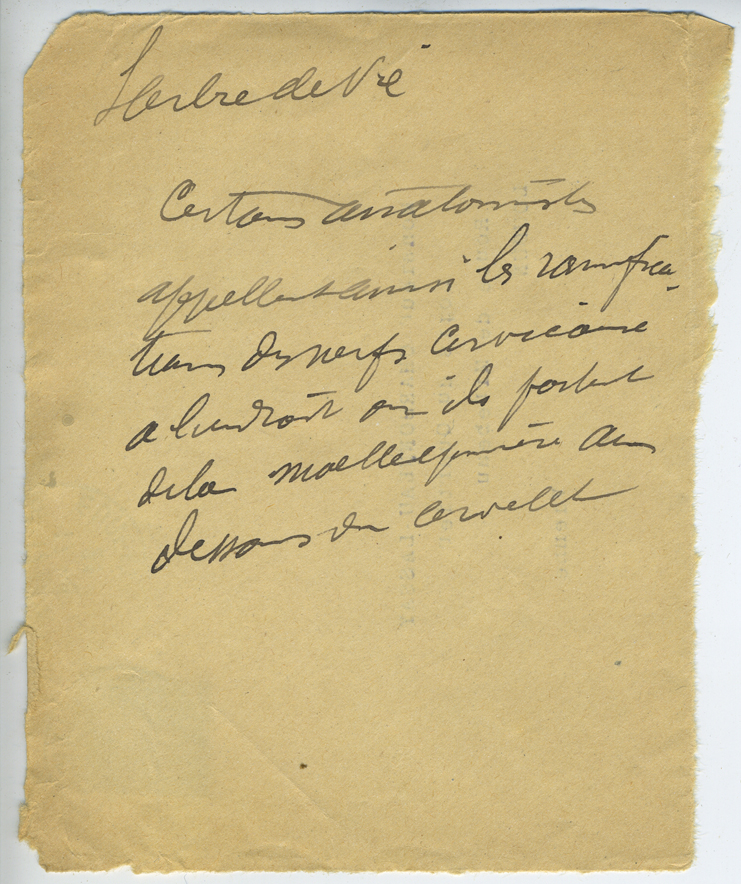 L'arbre de Vie
Certains anatomistes
appellent ainsi les ramifica-
tions des nerfs cervicaux
a l'endroit ou ils partent
de la moelle épinière au
dessous du cervelet